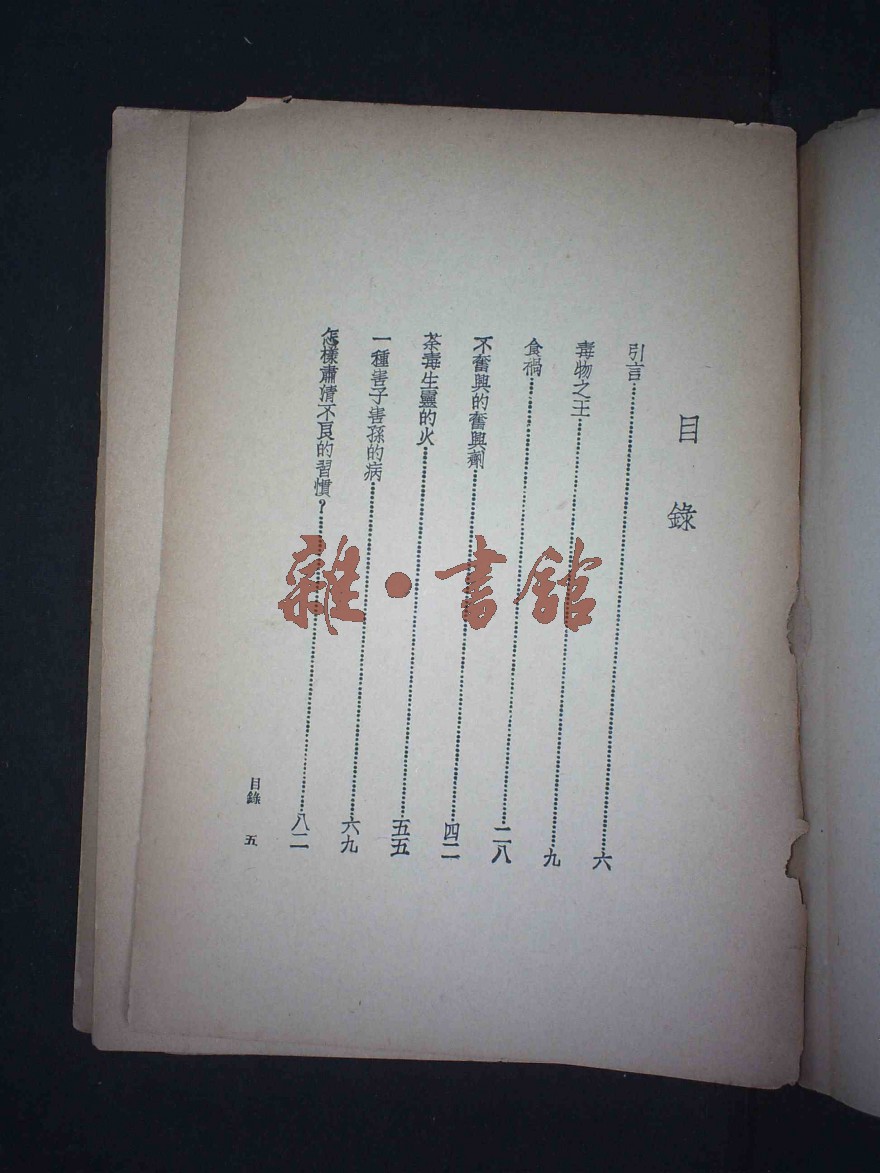 目錄
引言 六
毒物之王 九
食禍 二八
不奮興的奮興劑 四二
荼毒生靈的火 五五
一種害子害孫的病 六九
怎樣肅清不良的習慣？ 八二
目錄 五
雜·書館